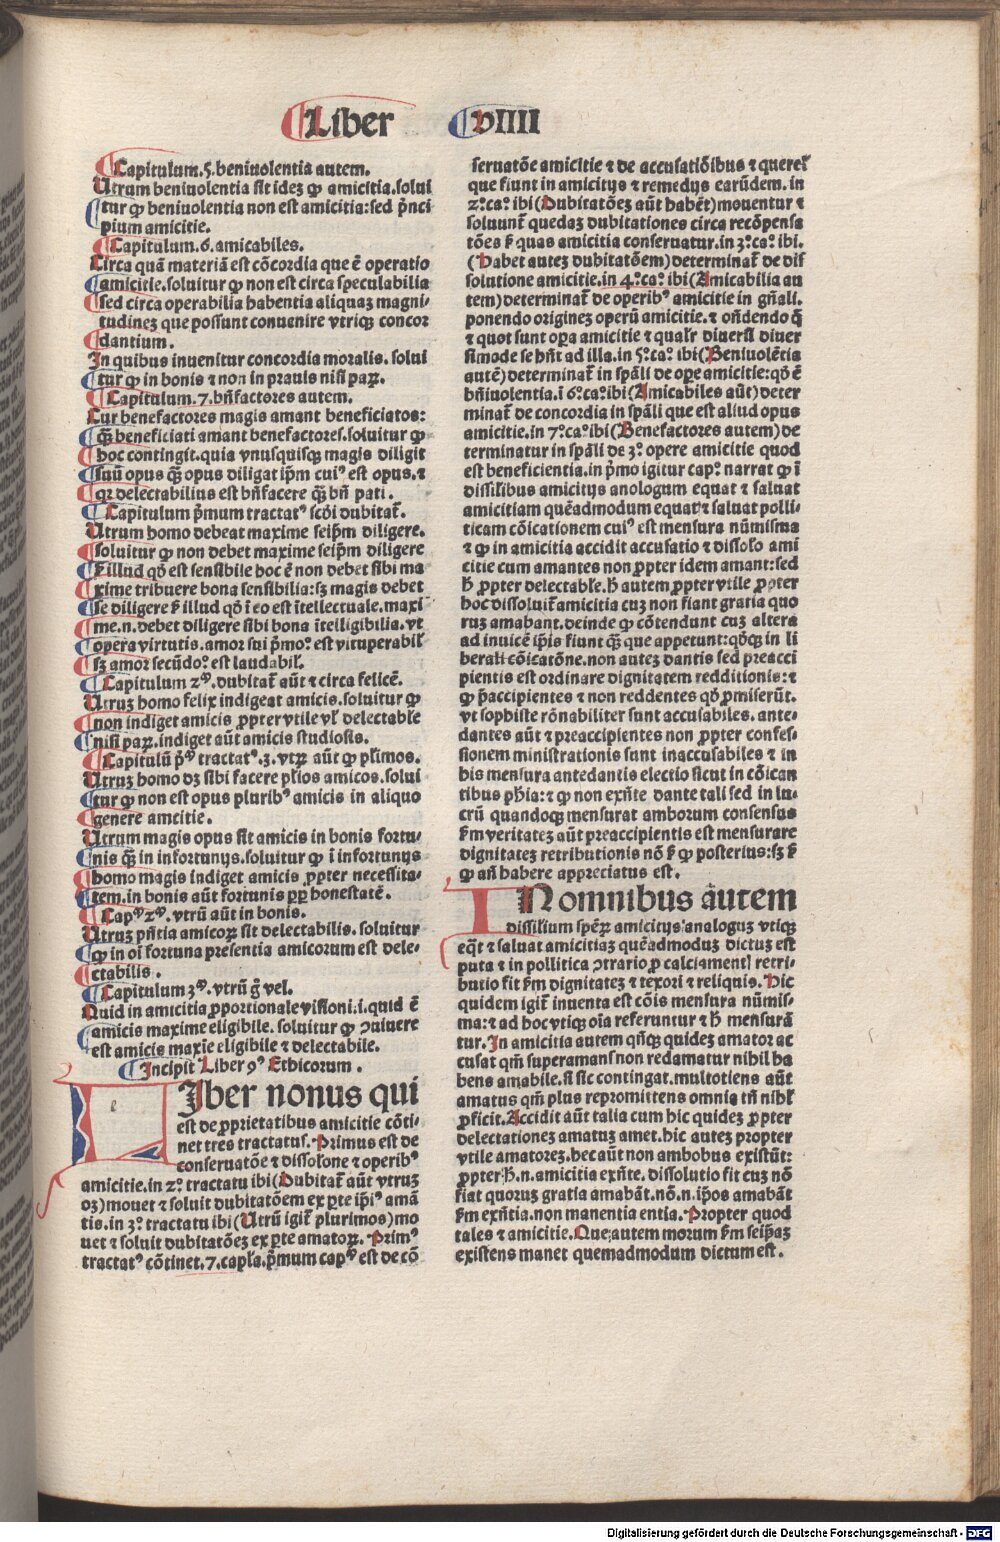 Liber VIIII
Capitulum.5.beniuolentia autem.
Utrum beniuolentia sit idez ꝙ amicitia.solui
tur ꝙ beniuolentia non est amicitia:sed p̄nci
pium amicitie.
Capitulum.6.amicabiles.
Circa quā materiā est cōcordia que ē operatio
amicitie.soluitur ꝙ non est circa speculabilia
sed circa operabilia habentia aliquaz magni-
tudinez que possunt conuenire vtriqꝫ concor
dantium.
In quibus inuenitur concordia moralis. solui
tur ꝙ in bonis ⁊ non in prauis nisi paꝝ.
Capitulum.7.bn̄factores autem.
Cur benefactores magis amant beneficiatos:
qꝫ̄ beneficiati amant benefactores.soluitur ꝙ
hoc contingit.quia vnusquisqꝫ magis diligit
suū opus qꝫ̄ opus diligat ip̄m cuiꝰ est opus.⁊
qꝛ delectabilius est bn̄facere qꝫ̄ bn̄ pati.
Capitulum p̄mum tractatꝰ scōi dubitat̄.
Utrum homo debeat maxime seip̄m diligere.
soluitur ꝙ non debet maxime seip̄m diligere
ẜm illud qō est sensibile hoc ē non debet sibi ma
xime tribuere bona sensibilia:sꝫ magis debet
se diligere ẜm illud qō ī eo est ītellectuale.maxi
me.n.debet diligere sibi bona ītelligibilia.vt
opera virtutis.amor sui p̄moº est vituperabil̄
sꝫ amor secūdoº est laudabil̄.
Capitulum 2ᵐ.dubitat̄ aūt ⁊ circa felicē.
Utruz homo felix indigeat amicis.soluitur ꝙ
non indiget amicis ꝓpter vtile vl̄ delectabile
nisi paꝝ.indiget aūt amicis studiosis.
Capitulū p̄ᵐ tractatꝰ.3.vtꝝ aūt ꝙ pl̄imos.
Utruz homo dꝫ sibi facere pl̄ios amicos.solui
tur ꝙ non est opus pluribꝰ amicis in aliquo
genere amcitie.
Utrum magis opus sit amicis in bonis fortu-
nis qꝫ̄ in infortunijs.soluitur ꝙ ī infortunijs
homo magis indiget amicis ꝓpter necessita-
tem.in bonis aūt fortunis ꝓp honestatē.
Capᵐ 2ᵐ.vtrū aūt in bonis.
Utruz pn̄tia amicoꝝ sit delectabilis. soluitur
ꝙ in oī fortuna presentia amicorum est dele-
ctabilis.
Capitulum 3ᵐ.vtrū ḡ vel.
Quid in amicitia ꝓportionale visioni.i.quid ē
amicis maxime eligibile. soluitur ꝙ ɔuiuere
est amicis maxīe eligibile ⁊ delectabile.
Incipit Liber 9ꝰ Ethicorum.
Liber nonus qui
est de ꝓprietatibus amicitie cōti-
net tres tractatus. Primus est de
conseruatōe ⁊ dissolone ⁊ operibꝰ
amicitie.in 2º tractatu ibi(Dubitat̄ aūt vtruz
oꝫ)mouet ⁊ soluit dubitatōem ex ꝑte ip̄iꝰ amā
tis.in 3º tractatu ibi(Utrū igit̄ plurimos)mo
uet ⁊ soluit dubitatōez ex ꝑte amatoꝝ. Primꝰ
tractatꝰ cōtinet.7.capl̄a.p̄mum capᵐ est de cō
seruatōe amicitie ⁊ de accusatiōibus ⁊ querel̄
que fiunt in amicitijs ⁊ remedijs earūdem. in
2º.caº.ibi(Dubitatōez aūt habet̄)mouentur ⁊
soluunt̄ quedaz dubitationes circa recōpensa
tōes ẜm quas amicitia conseruatur.in 3º.caº.ibi.
(Habet autez dubitatōem)determinat̄ de dis
solutione amicitie.in 4º.caº.ibi(Amicabilia au
tem)determinat̄ de operibꝰ amicitie in gn̄ali.
ponendo originez operū amicitie.⁊ on̄dendo q̄
⁊ quot sunt oꝑa amicitie ⁊ qualr̄ diuersi diuer
simode se hn̄t ad illa.in 5º.caº.ibi(Beniuolētia
autē)determinat̄ in spāli de ope amicitie:qō ē
bn̄iuolentia.ī 6º.caº.ibi(Amicabiles aūt)deter
minat̄ de concordia in spāli que est aliud opus
amicitie.in 7º.caº.ibi(Benefactores autem)de
terminatur in spāli de 3º.opere amicitie quod
est beneficientia.in p̄mo igitur capº.narrat ꝙ ī
dissilibus amicitijs anologum equat ⁊ saluat
amicitiam quēadmodum equat̄ ⁊ saluat polli-
ticam cōicationem cuiꝰ est mensura nūmisma
⁊ ꝙ in amicitia accidit accusatio ⁊ dissolo ami
citie cum amantes non ꝓpter idem amant:sed
h̄ ꝓpter delectabile.h̄ autem ꝓpter vtile ꝓpter
hoc dissoluit̄ amicitia cuz non fiant gratia quo
ruz amabant.deinde ꝙ cōtendunt cuz altera
ad inuicē ip̄is fiunt qꝫ que appetunt:qōqꝫ in li
berali cōicatōne.non autez dantis sed preacci
pientis est ordinare dignitatem redditionis:⁊
ꝙ p̄accipientes ⁊ non reddentes qō ꝓmiserūt.
vt sophiste rōnabiliter sunt accusabiles. ante-
dantes aūt ⁊ preaccipientes non ꝓpter confes-
sionem ministrationis sunt inaccusabiles ⁊ in
his mensura antedantis electio sicut in cōican
tibus ph̄ia:⁊ ꝙ non exn̄te dante tali sed in lu-
crū quandoqꝫ mensurat amborum consensus
ẜm veritatez aūt preaccipientis est mensurare
dignitatez retributionis nō ẜm ꝙ posterius:sꝫ ẜm
ꝙ an̄ habere appreciatus est.
In omnibus autem
dissilium spēꝝ amicitijs analoguz vtiqꝫ
eq̄t ⁊ saluat amicitiaz quēadmoduz dictuz est
puta ⁊ in pollitica ɔtrario ꝓ calciamentꝭ retri-
butio fit ẜm dignitatez ⁊ texori ⁊ reliquis. Hic
quidem igit̄ inuenta est cōis mensura nūmis-
ma:⁊ ad hoc vtiqꝫ oīa referuntur ⁊ h̄ mensurā
tur. In amicitia autem qn̄qꝫ quidez amator ac
cusat qm̄ superamans non redamatur nihil ha
bens amabile.si sic contingat.multotiens aūt
amatus qm̄ plus repromittens omnia tn̄ nihl̄
ꝓficit.Accidit aūt talia cum hic quidez ꝓpter
delectationez amatuz amet.hic autez propter
vtile amatorez.hec aūt non ambobus existūt:
ꝓpter.h̄.n.amicitia exn̄te. dissolutio fit cuz nō
fiat quoruz gratia amabāt.nō.n.ip̄os amabāt
ẜm exn̄tia.non manentia entia. Propter quod
tales ⁊ amicitie.Que autem morum ẜm seip̄az
existens manet quemadmodum dictum est.
Digitalisierung gefördert durch die Deutsche Forschungsgemeinschaft - DFG